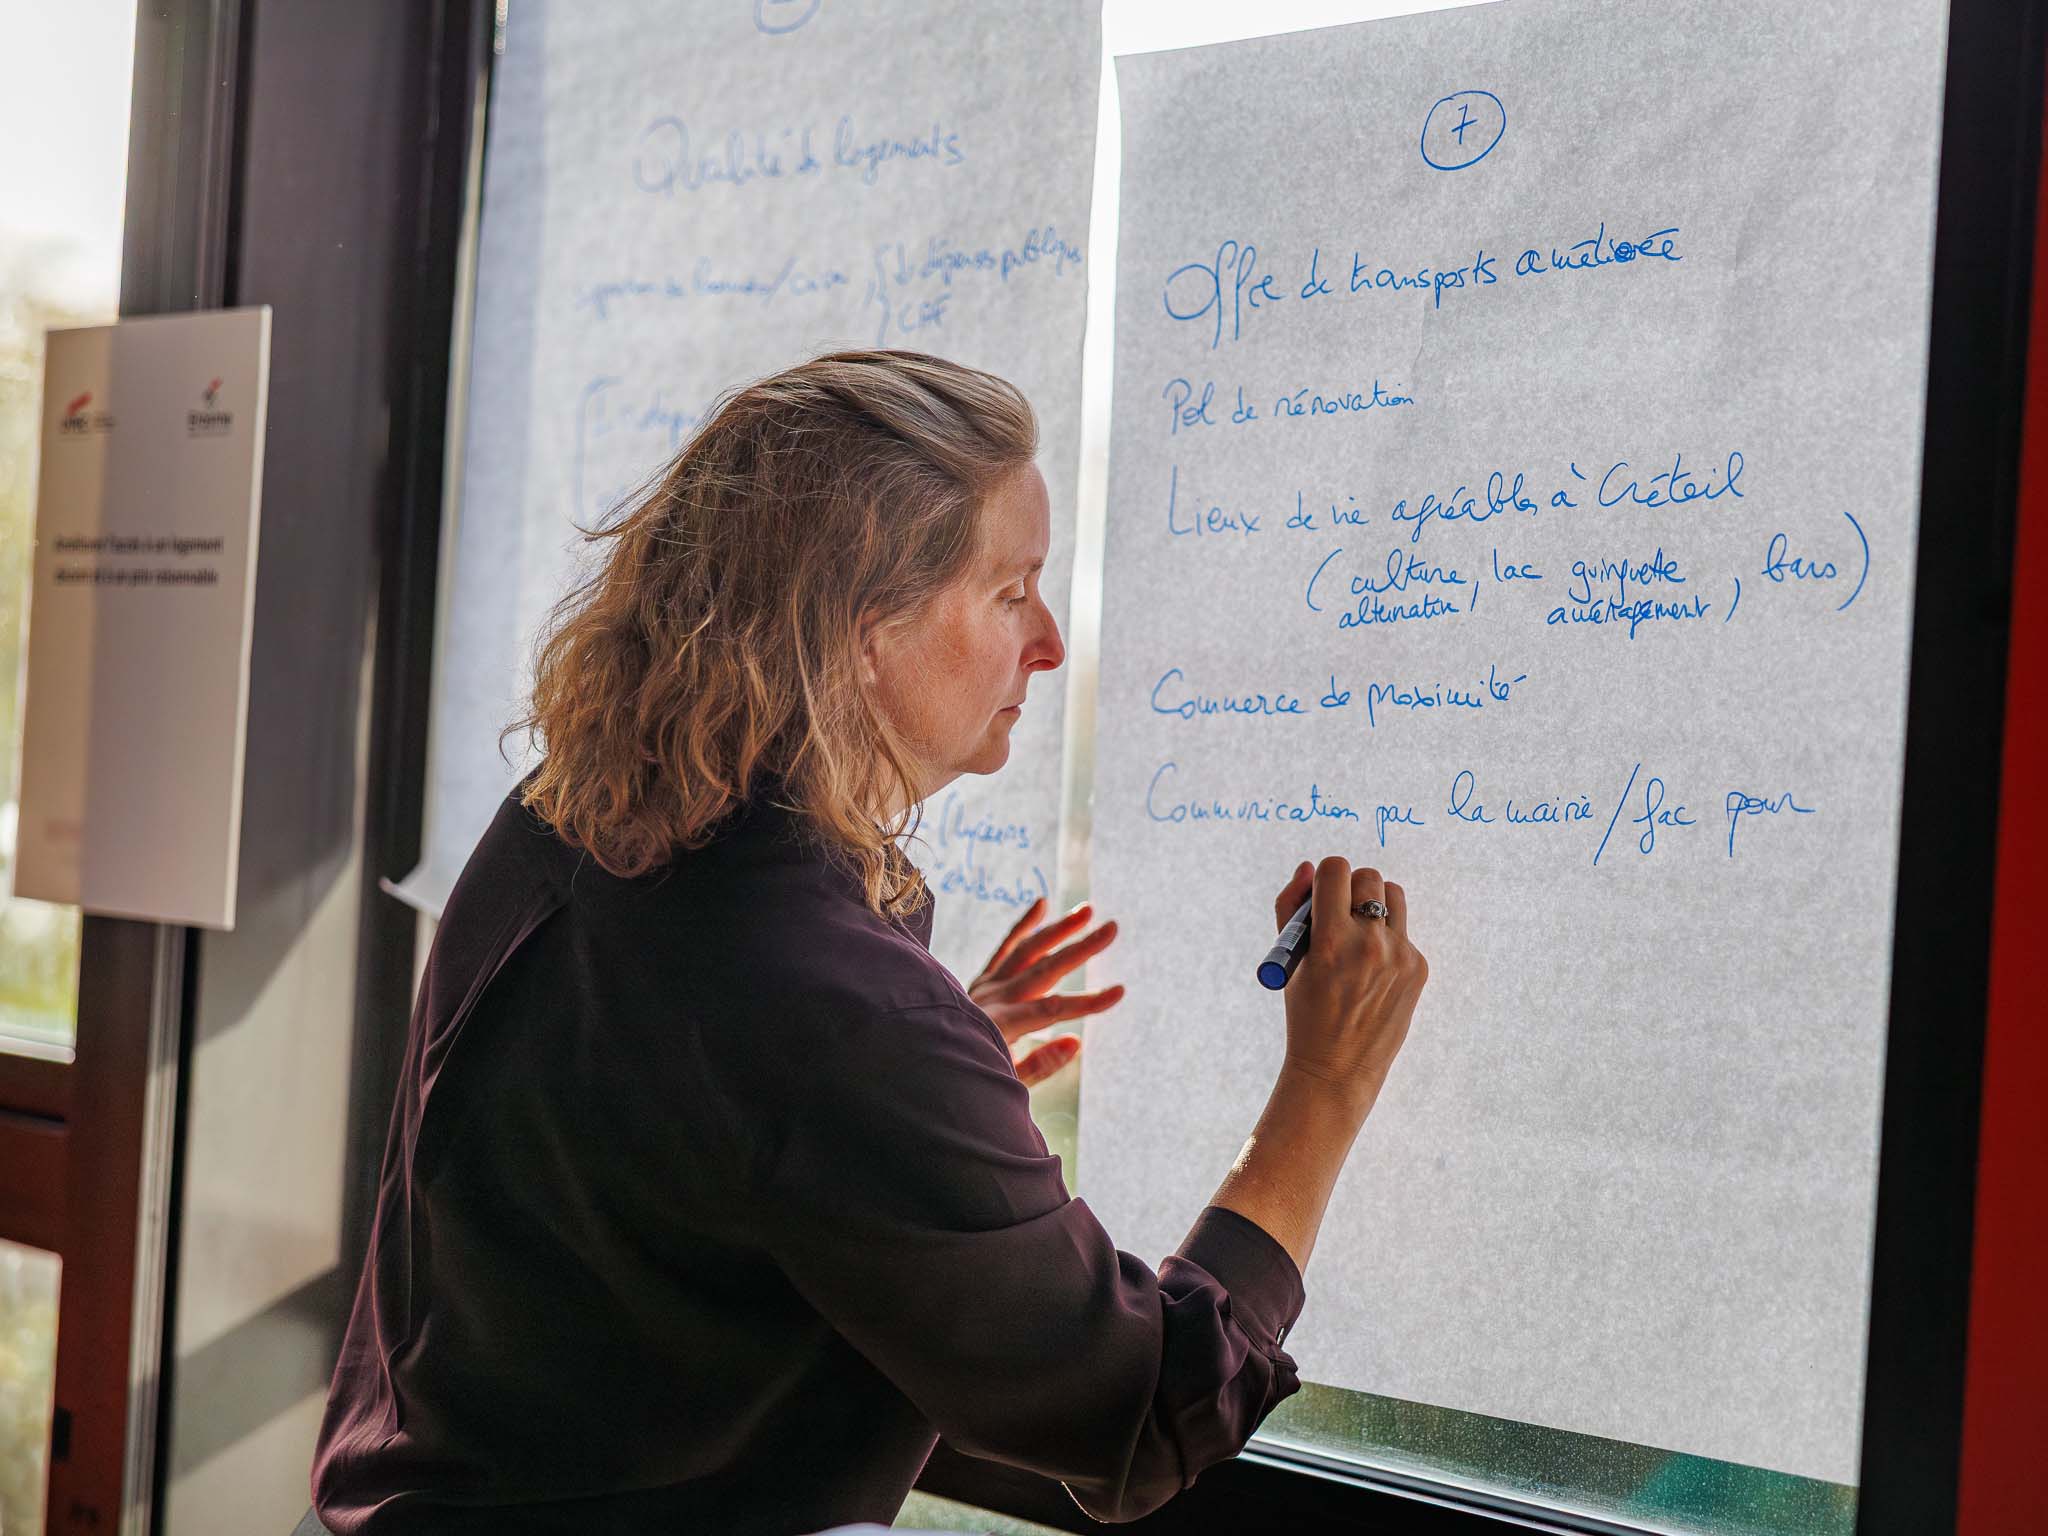 Améliorer l'accès à un logement
décent et à un prix raisonnable
Qualité des logements
dépenses publiques
CAF
(lycéens
étudiants)
7
Offre de transports améliorée
Pol de rénovation
Lieux de vie agréables à Créteil
(culture, lac guinguette, bars)
alternative, aménagement,
Commerce de proximité
Communication par la mairie/fac pour